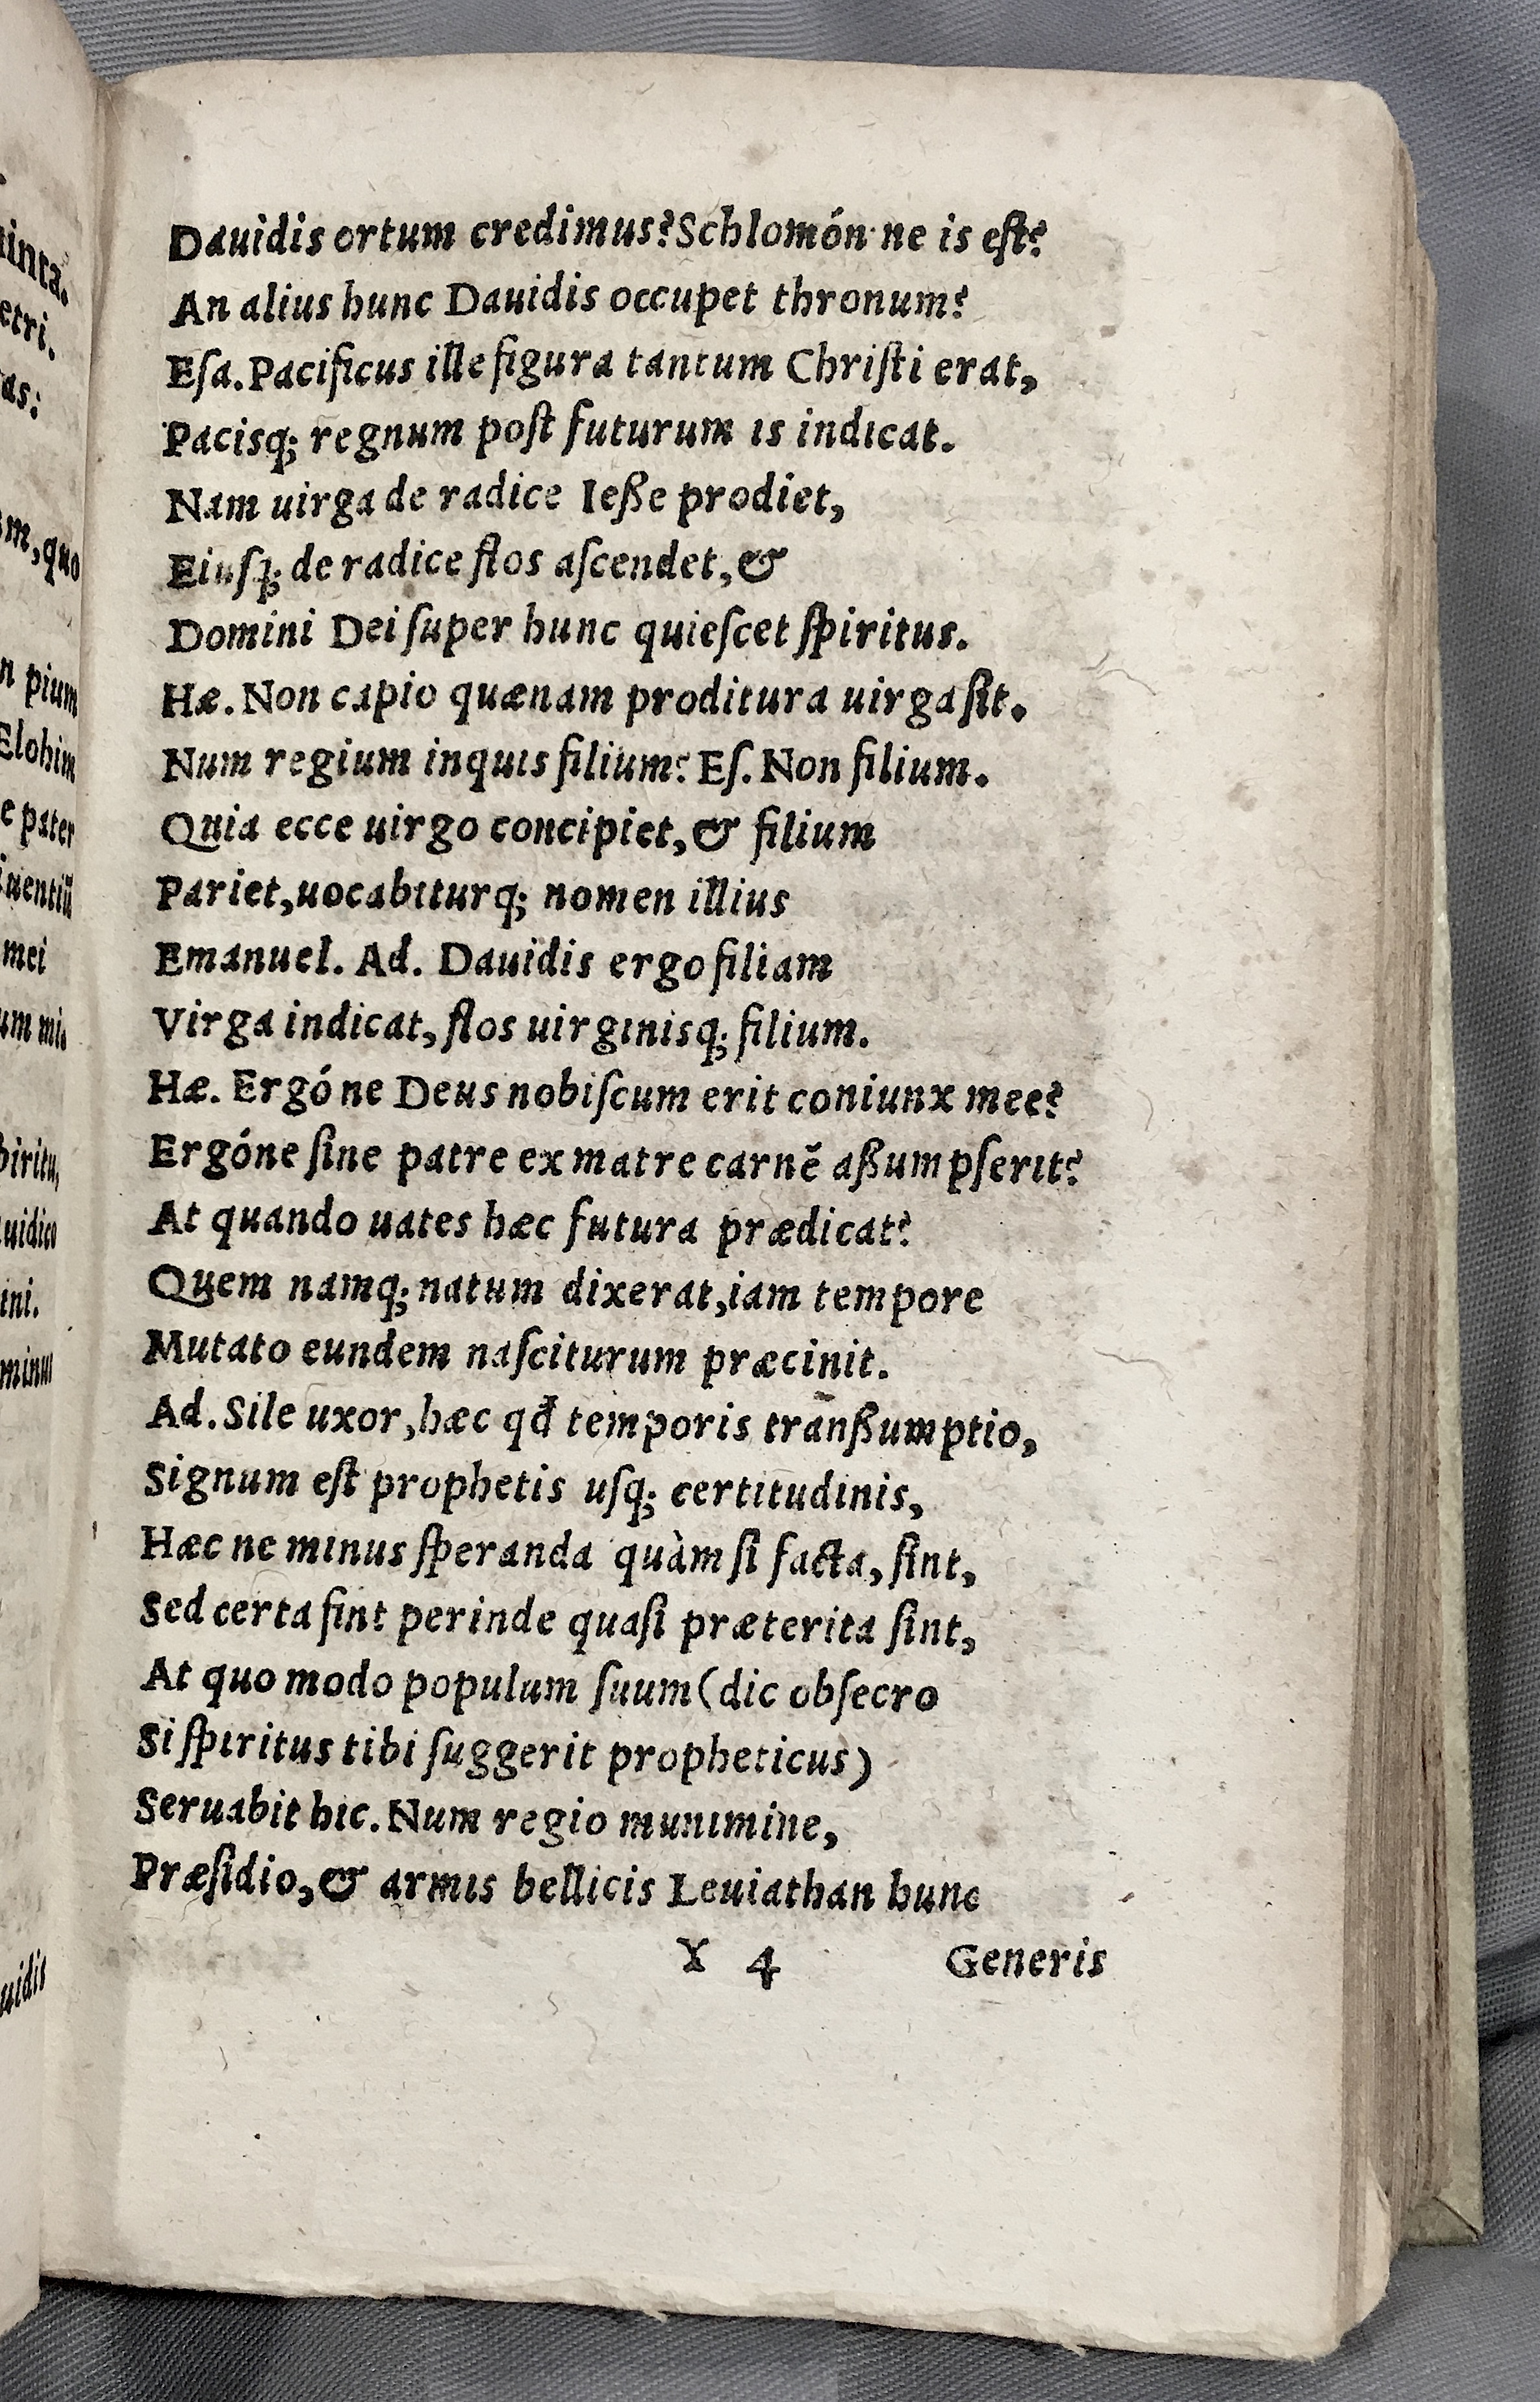 Dauidis ortum credimus? Schlomón ne is eſt?
An alius hunc Dauidis occupet thronum?
Eſa. Pacificus ille figura tantum Chriſti erat,
Pacisq; regnum poſt futurum is indicat.
Nam uirga de radice Ieße prodiet,
Eiusq; de radice flos aſcendet, &
Domini Dei ſuper hunc quieſcet ſpiritus.
Hæ. Non capio quænam proditura uirga ſit.
Num regium inquis filium? Eſ. Non filium.
Quia ecce uirgo concipiet, & filium
Pariet, uocabiturq; nomen illius
Emanuel. Ad. Dauidis ergo filiam
Virga indicat, flos uirginisq; filium.
Hæ. Ergóne Deus nobiſcum erit coniunx mee?
Ergóne ſine patre ex matre carnẽ aßumpſerit?
At quando uates hæc futura prædicat?
Quem namq; natum dixerat, iam tempore
Mutato eundem naſciturum præcinit.
Ad. Sile uxor, hæc qđ temporis tranßumptio,
Signum eſt prophetis uſq; certitudinis,
Hæc ne minus ſperanda quàm ſi facta, ſint,
Sed certa ſint perinde quaſi præterita ſint,
At quo modo populum ſuum (dic obſecro
Si ſpiritus tibi ſuggerit propheticus)
Seruabit hic. Num regio munimine,
Præſidio, & armis bellicis Leuiathan hunc
Y 4 Generis
etri.
as:
m, quo
n pium
Elohim
e pater
mei
um mi-
ini.
uidis